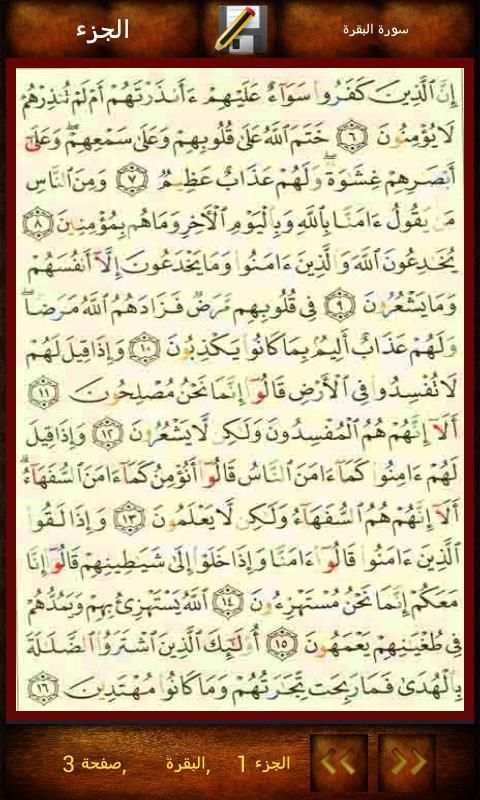 الجزء
سورة البقرة
إِنَّ ٱلَّذِينَ كَفَرُوا۟ سَوَآءٌ عَلَيْهِمْ ءَأَنذَرْتَهُمْ أَمْ لَمْ تُنذِرْهُمْ
لَا يُؤْمِنُونَ ٦ خَتَمَ ٱللَّهُ عَلَىٰ قُلُوبِهِمْ وَعَلَىٰ سَمْعِهِمْ ۖ وَعَلَىٰٓ
أَبْصَٰرِهِمْ غِشَٰوَةٌ ۖ وَلَهُمْ عَذَابٌ عَظِيمٌ ٧ وَمِنَ ٱلنَّاسِ
مَن يَقُولُ ءَامَنَّا بِٱللَّهِ وَبِٱلْيَوْمِ ٱلْـَٔاخِرِ وَمَا هُم بِمُؤْمِنِينَ ٨
يُخَٰدِعُونَ ٱللَّهَ وَٱلَّذِينَ ءَامَنُوا۟ وَمَا يَخْدَعُونَ إِلَّآ أَنفُسَهُمْ
وَمَا يَشْعُرُونَ ٩ فِى قُلُوبِهِم مَّرَضٌ فَزَادَهُمُ ٱللَّهُ مَرَضًا ۖ
وَلَهُمْ عَذَابٌ أَلِيمٌۢ بِمَا كَانُوا۟ يَكْذِبُونَ ١٠ وَإِذَا قِيلَ لَهُمْ
لَا تُفْسِدُوا۟ فِى ٱلْأَرْضِ قَالُوٓا۟ إِنَّمَا نَحْنُ مُصْلِحُونَ ١١
أَلَآ إِنَّهُمْ هُمُ ٱلْمُفْسِدُونَ وَلَٰكِن لَّا يَشْعُرُونَ ١٢ وَإِذَا قِيلَ
لَهُمْ ءَامِنُوا۟ كَمَآ ءَامَنَ ٱلنَّاسُ قَالُوٓا۟ أَنُؤْمِنُ كَمَآ ءَامَنَ ٱلسُّفَهَآءُ ۗ
أَلَآ إِنَّهُمْ هُمُ ٱلسُّفَهَآءُ وَلَٰكِن لَّا يَعْلَمُونَ ١٣ وَإِذَا لَقُوا۟
ٱلَّذِينَ ءَامَنُوا۟ قَالُوٓا۟ ءَامَنَّا وَإِذَا خَلَوْا۟ إِلَىٰ شَيَٰطِينِهِمْ قَالُوٓا۟ إِنَّا
مَعَكُمْ إِنَّمَا نَحْنُ مُسْتَهْزِءُونَ ١٤ ٱللَّهُ يَسْتَهْزِئُ بِهِمْ وَيَمُدُّهُمْ
فِى طُغْيَٰنِهِمْ يَعْمَهُونَ ١٥ أُو۟لَٰٓئِكَ ٱلَّذِينَ ٱشْتَرَوُا۟ ٱلضَّلَٰلَةَ
بِٱلْهُدَىٰ فَمَا رَبِحَت تِّجَٰرَتُهُمْ وَمَا كَانُوا۟ مُهْتَدِينَ ١٦
الجزء 1 ,البقرة ,صفحة 3